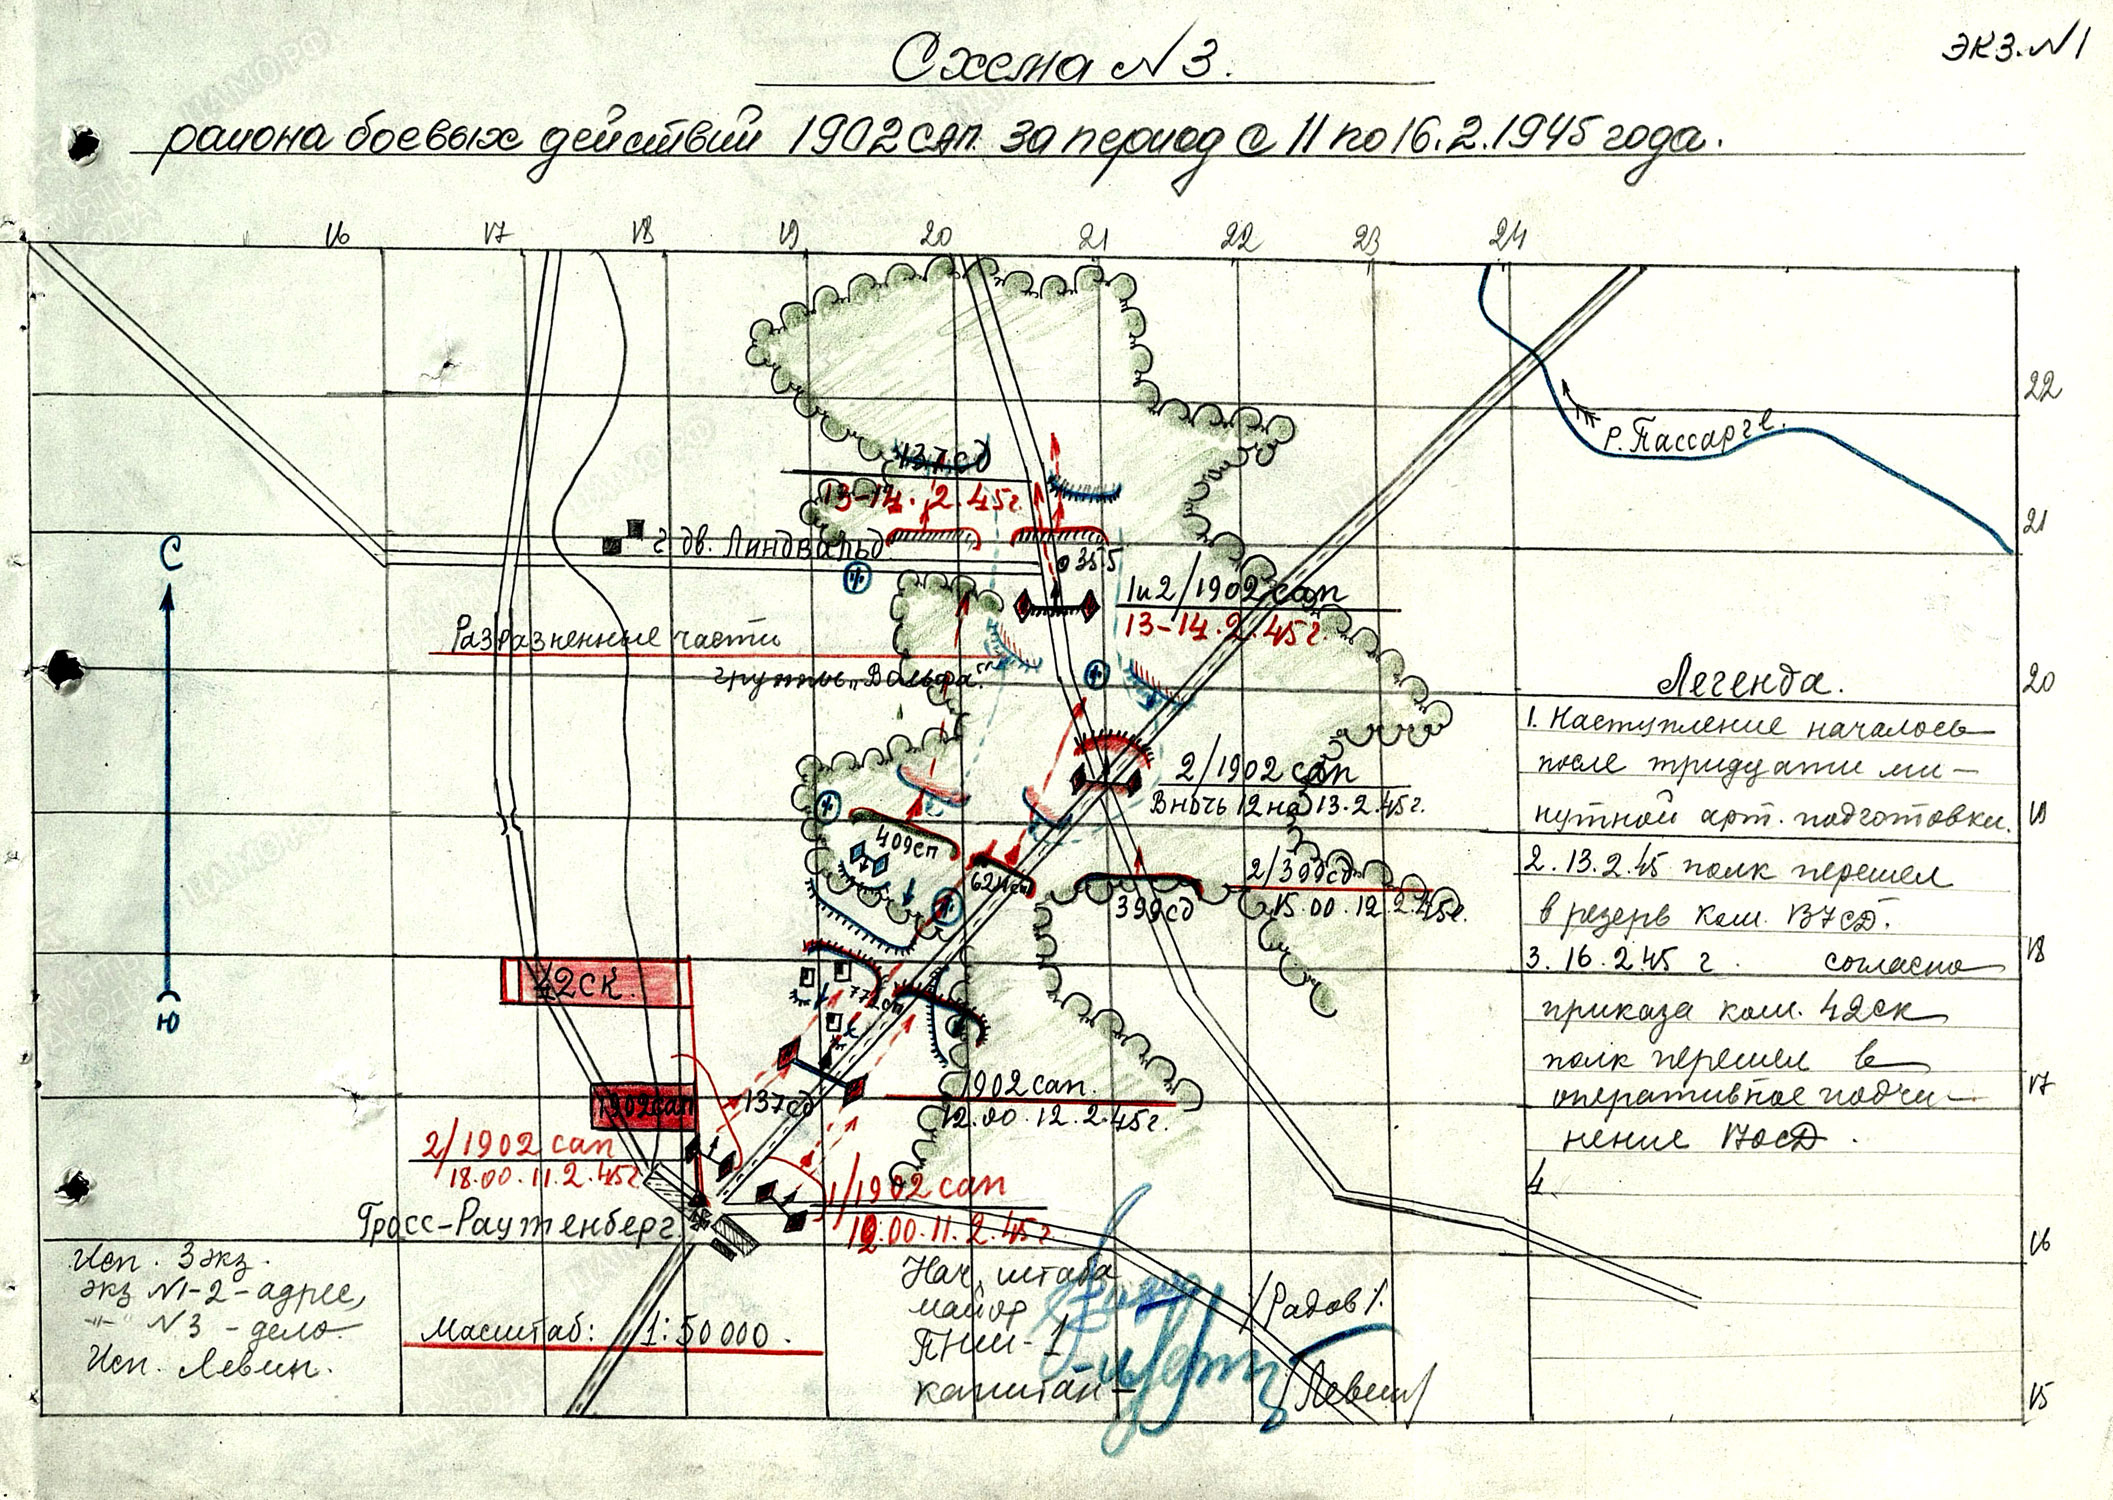 Схема №3.
экз. №1
района боевых действий 1902 сап. за период с 11 по 16.2.1945 года.
16 17 18 19 20 21 22 23 24
22
р. Пассарге.
137сд
13-14.2.45г.
21
г. дв. Линдвальд
35.5
С
1и2/1902 сап
13-14.2.45г.
Разразненные части
группы „Вальфа"
20
Легенда.
1. Наступление началось
после тридцати ми-
нутной арт. подготовки.
19
2. 13.2.45 полк перешел
в резерв ком. 137сд.
3. 16.2.45 г. согласно
18
приказа ком. 42ск
полк перешел в
17
оперативное подчи-
нение 170сд.
4.
2/1902 сап
В ночь 12 на 13.2.45г.
409сп
624сп
399сд
2/399сд
15.00.12.2.45г.
42ск.
Ю
772сп
1902сап
137сд
1902 сап.
12.00.12.2.45г.
2/1902 сап
18.00.11.2.45г.
1/1902 сап
Гросс-Раутенберг.
16
Исп. 3 экз.
экз №1-2-адрес,
-"- №3 -дело.
Исп. Левин.
Масштаб: 1:50000.
Нач. штаба
майор /Радов/.
ПНШ-1
капитан- /Левин/
15